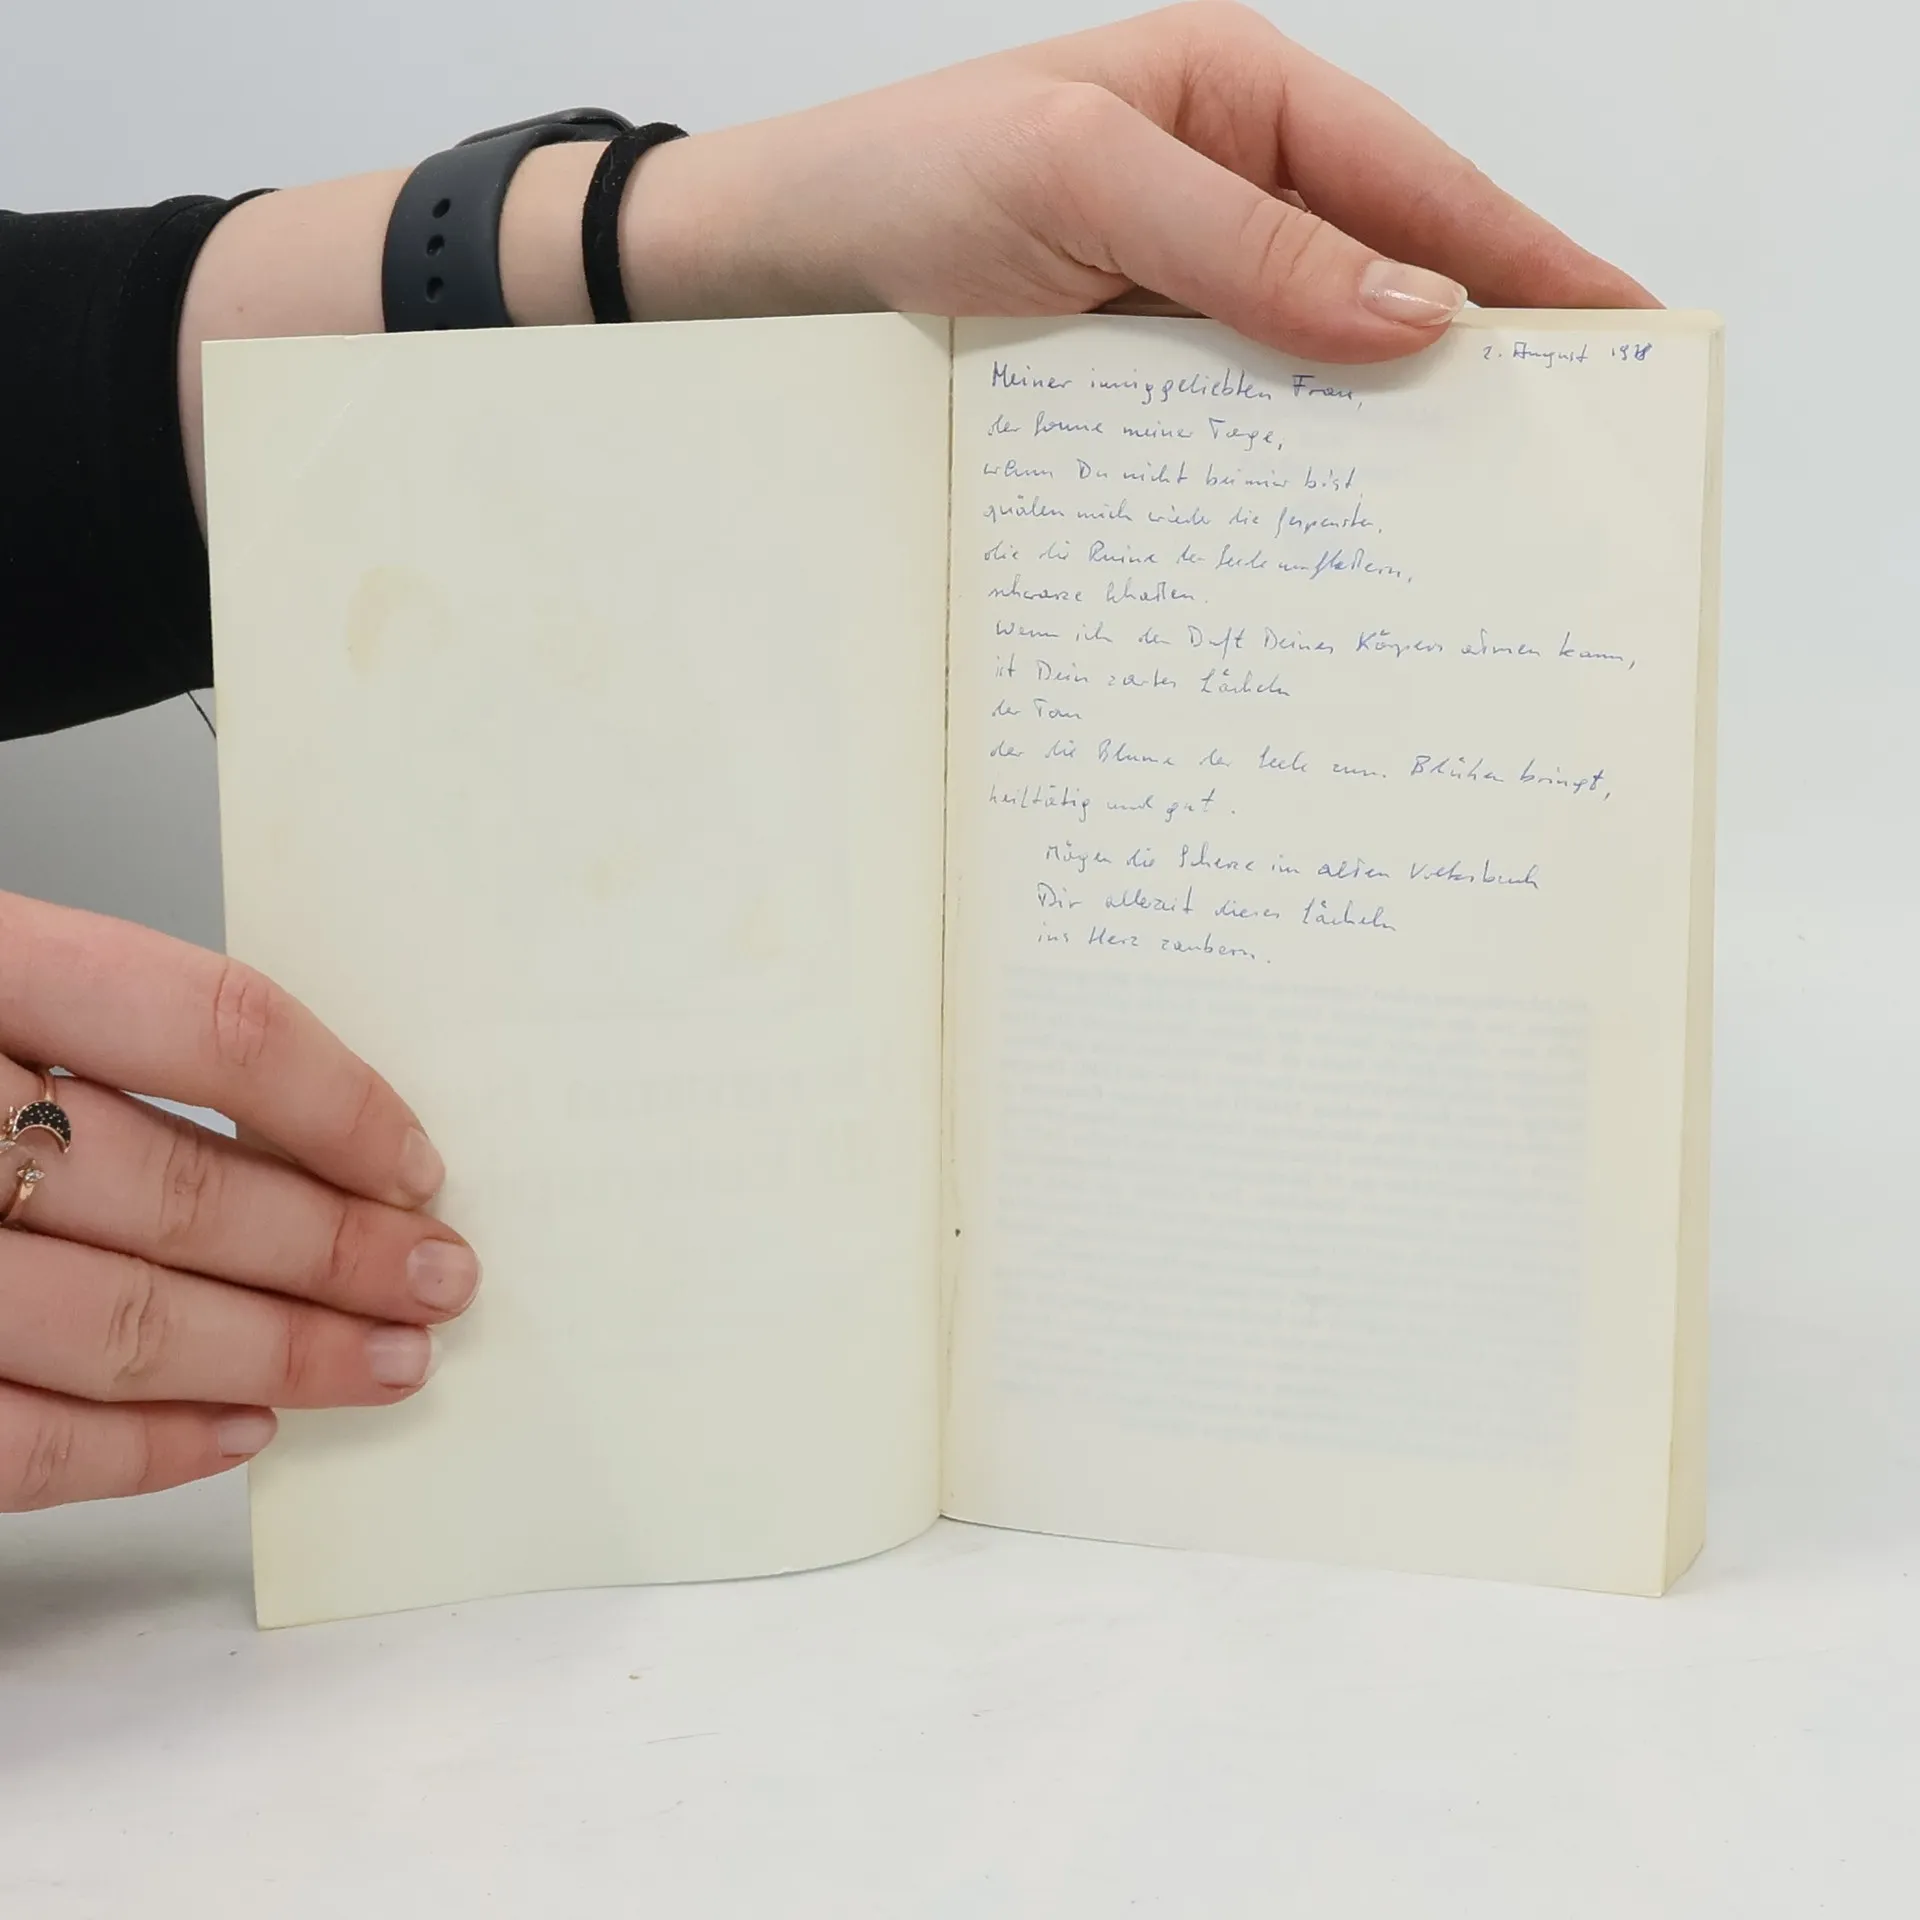 2. August 1978
Meiner inniggeliebten Frau,
der Sonne meiner Tage,
wenn Du nicht bei mir bist,
quälen mich wieder die Gespenster,
die die Ruine der Seele umflattern,
schwarze Schatten.
Wenn ich den Duft Deines Körpers atmen kann,
ist Dein zartes Lächeln
der Tau
der die Blume der Seele zum Blühen bringt,
heiltätig und gut.
Mögen die Scherze im alten Volksbuch
Dir allezeit dieses Lächeln
ins Herz zaubern.